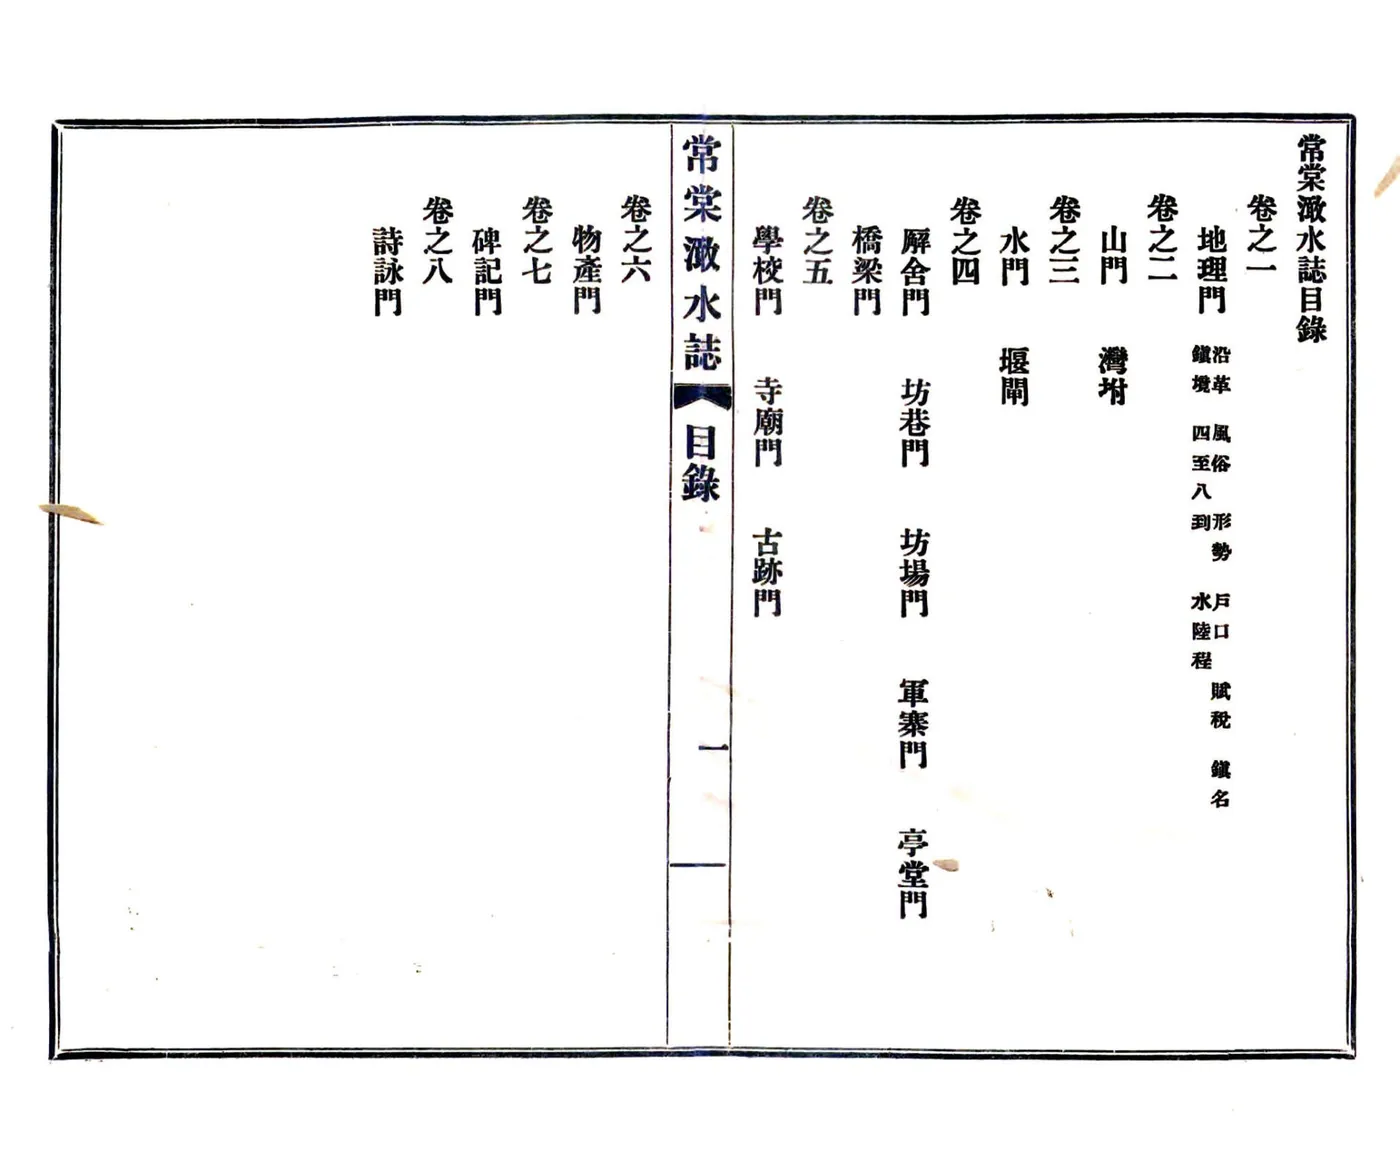 常棠澉水誌目錄
卷之一
地理門 沿革 風俗 形勢 戶口 賦稅 鎭名
鎭境 四至八到 水陸程
卷之二
山門 灣坿
卷之三
水門 堰閘
卷之四
廨舍門 坊巷門 坊場門 軍寨門 亭堂門
橋梁門
卷之五
學校門 寺廟門 古跡門
常棠澉水誌 目錄 一
卷之六
物產門
卷之七
碑記門
卷之八
詩詠門